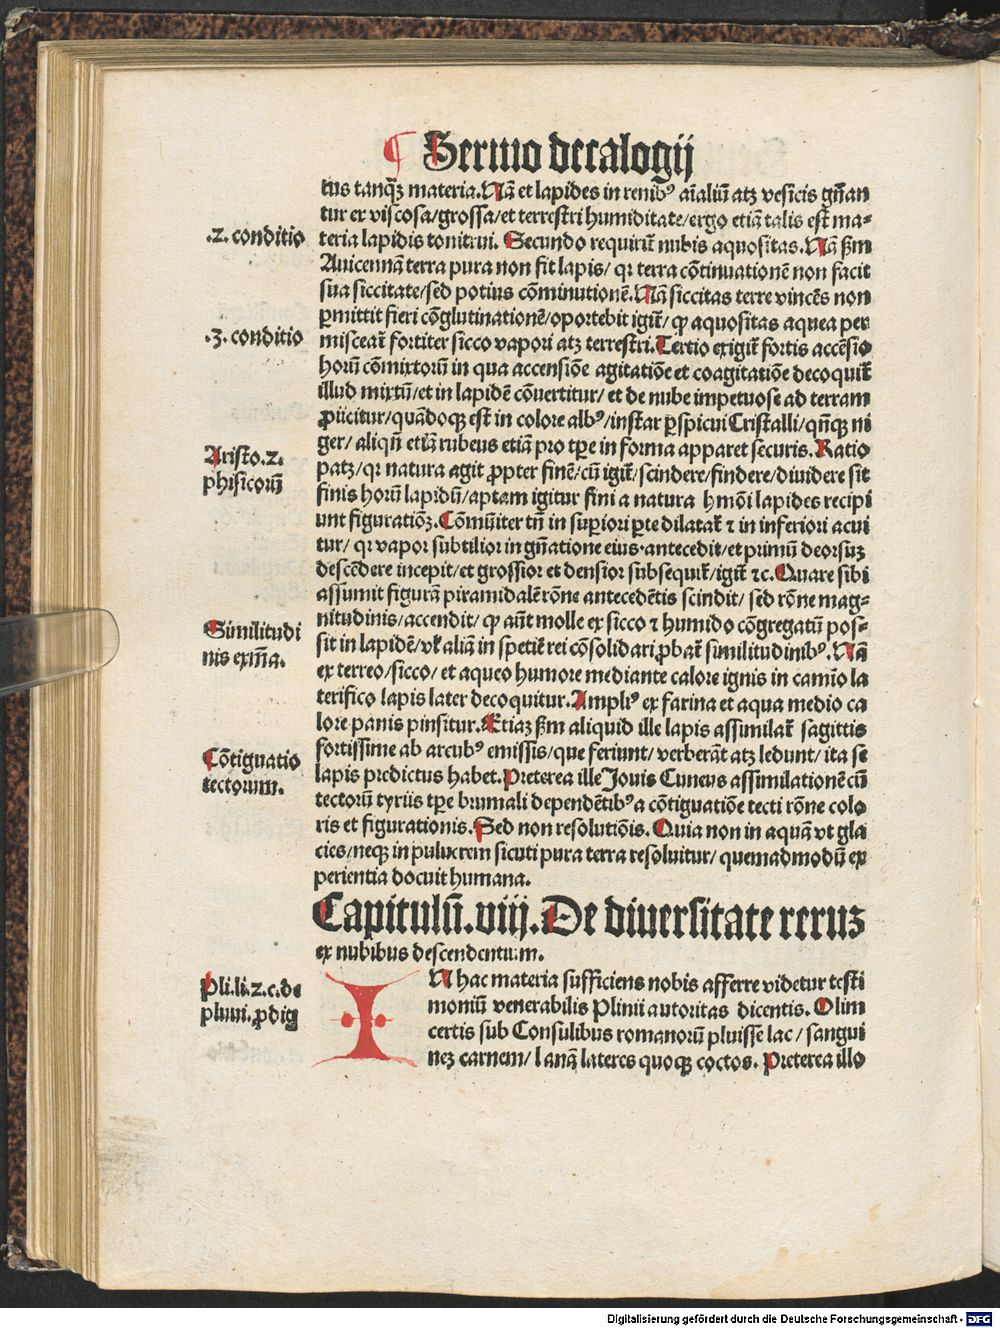 ¶ Sermo decalogij
tus tanqȝ materia. Nā et lapides in renibꝰ aīaliū atqȝ vesicis gn̄an
tur ex viscosa/grossa/et terrestri humiditate/ergo etiā talis est ma⸗
.2. conditio
teria lapidis tonitrui. Secundo requirit̄ nubis aquositas. Nā ẜm
Auicennā terra pura non fit lapis/ qr terra cōtinuationē non facit
sua siccitate/sed potius cōminutionē. Nā siccitas terre vincēs non
ꝑmittit fieri cōglutinationē/oportebit igit̄/ ꝙ aquositas aquea per
.3. conditio
misceat̄ fortiter sicco vapori atqȝ terrestri. Tertio exigit̄ fortis accēsio
horū cōmixtorū in qua accensiōe agitatiōe et coagitatiōe decoquit̄
illud mixtū/et in lapidē cōuertitur/ et de nube impetuose ad terram
ꝓiicitur/quādoqȝ est in colore albꝰ/instar ꝑspicui Cristalli/qn̄qȝ ni
ger/ aliqn̄ etiā rubeus etiā pro tꝑe in forma apparet securis. Ratio
Aristo.2.
phisicorū
patȝ/ qr natura agit ꝓpter finē/cū igit̄/scindere/findere/diuidere sit
finis horū lapidū/aptam igitur fini a natura hmōi lapides recipi
unt figuratiōȝ. Cōmūiter tn̄ in suꝑiori ꝑte dilatat̄ ⁊ in inferiori acui
tur/ qr vapor subtilior in gn̄atione eius antecedit/et primū deorsuȝ
descēdere incepit/et grossior et densior subsequit̄/igit̄ ⁊c. Quare sibi
assumit figurā piramidalē rōne antecedētis scindit/ sed rōne mag⸗
nitudinis/accendit/ ꝙ aūt molle ex sicco ⁊ humido cōgregatū pos⸗
Similitudi
nis exm̄a.
sit in lapidē/vl̄ aliā in spetiē rei cōsolidari ꝓbat̄ similitudinibꝰ. Nā
ex terreo/sicco/ et aqueo humore mediante calore ignis in camīo la
terifico lapis later decoquitur. Amplꝰ ex farina et aqua medio ca
lore panis pinsitur. Etiaȝ ẜm aliquid ille lapis assimilat̄ sagittis
fortissime ab arcubꝰ emissis/que feriunt/verberāt atqȝ ledunt/ita se
Cōtignatio
tectorum.
lapis predictus habet. Preterea ille Jouis Cuneus assimilationē cū
tectorū tyriis tꝑe brumali dependētibꝰ a cōtiguatiōe tecti rōne colo
ris et figurationis. Sed non resolutiōis. Quia non in aquā vt gla
cies/neqȝ in puluerem sicuti pura terra resoluitur/ quemadmodū ex
perientia docuit humana.
Capitulū.viij. De diuersitate reruȝ
ex nubibus descendentuum.
Pli.li.2.c.de
pluui. ꝓdig
IN hac materia sufficiens nobis afferre videtur testi
moniū venerabilis Plinii autoritas dicentis. Olim
certis sub Consulibus romanorū pluisse lac/ sangui
neȝ carnem/ lanā lateres quoqȝ coctos. Preterea illo
Digitalisierung gefördert durch die Deutsche Forschungsgemeinschaft - DFG